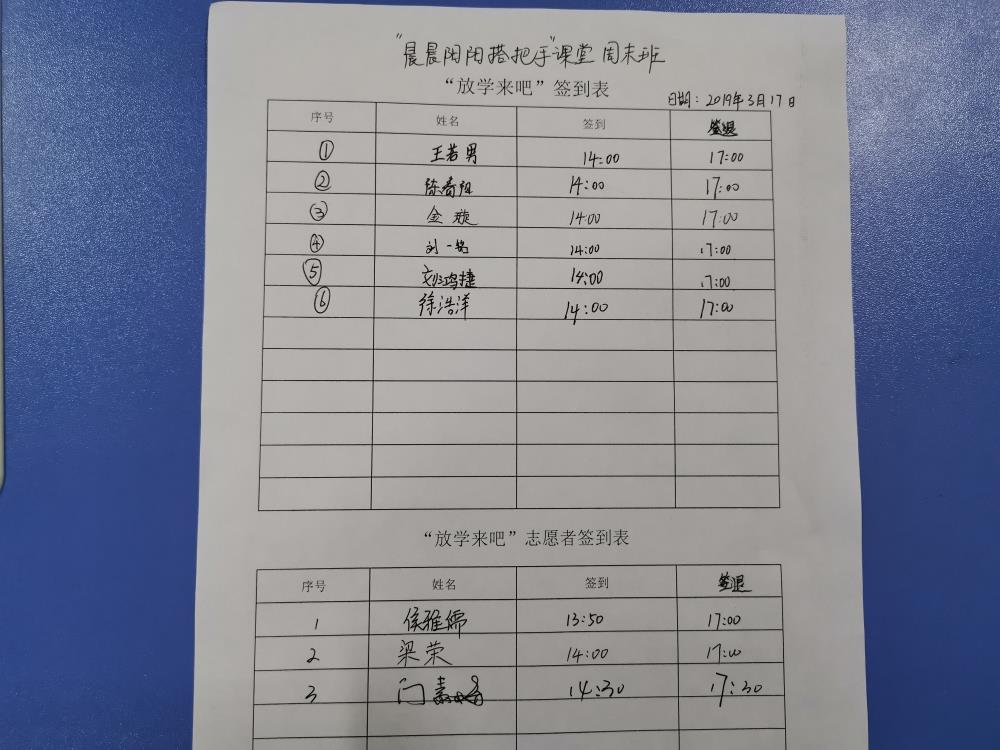 “晨晨阳阳搭把手”课堂 周末班
“放学来吧”签到表
日期：2019年3月17日
序号 姓名 签到 签退
① 王若男 14:00 17:00
② 陈春阳 14:00 17:00
③ 金璇 14:00 17:00
④ 刘一铭 14:00 17:00
⑤ 刘鸿捷 14:00 17:00
⑥ 徐浩洋 14:00 17:00
“放学来吧”志愿者签到表
序号 姓名 签到 签退
1 侯雅儒 13:50 17:00
2 梁荣 14:00 17:00
3 门 14:30 17:30